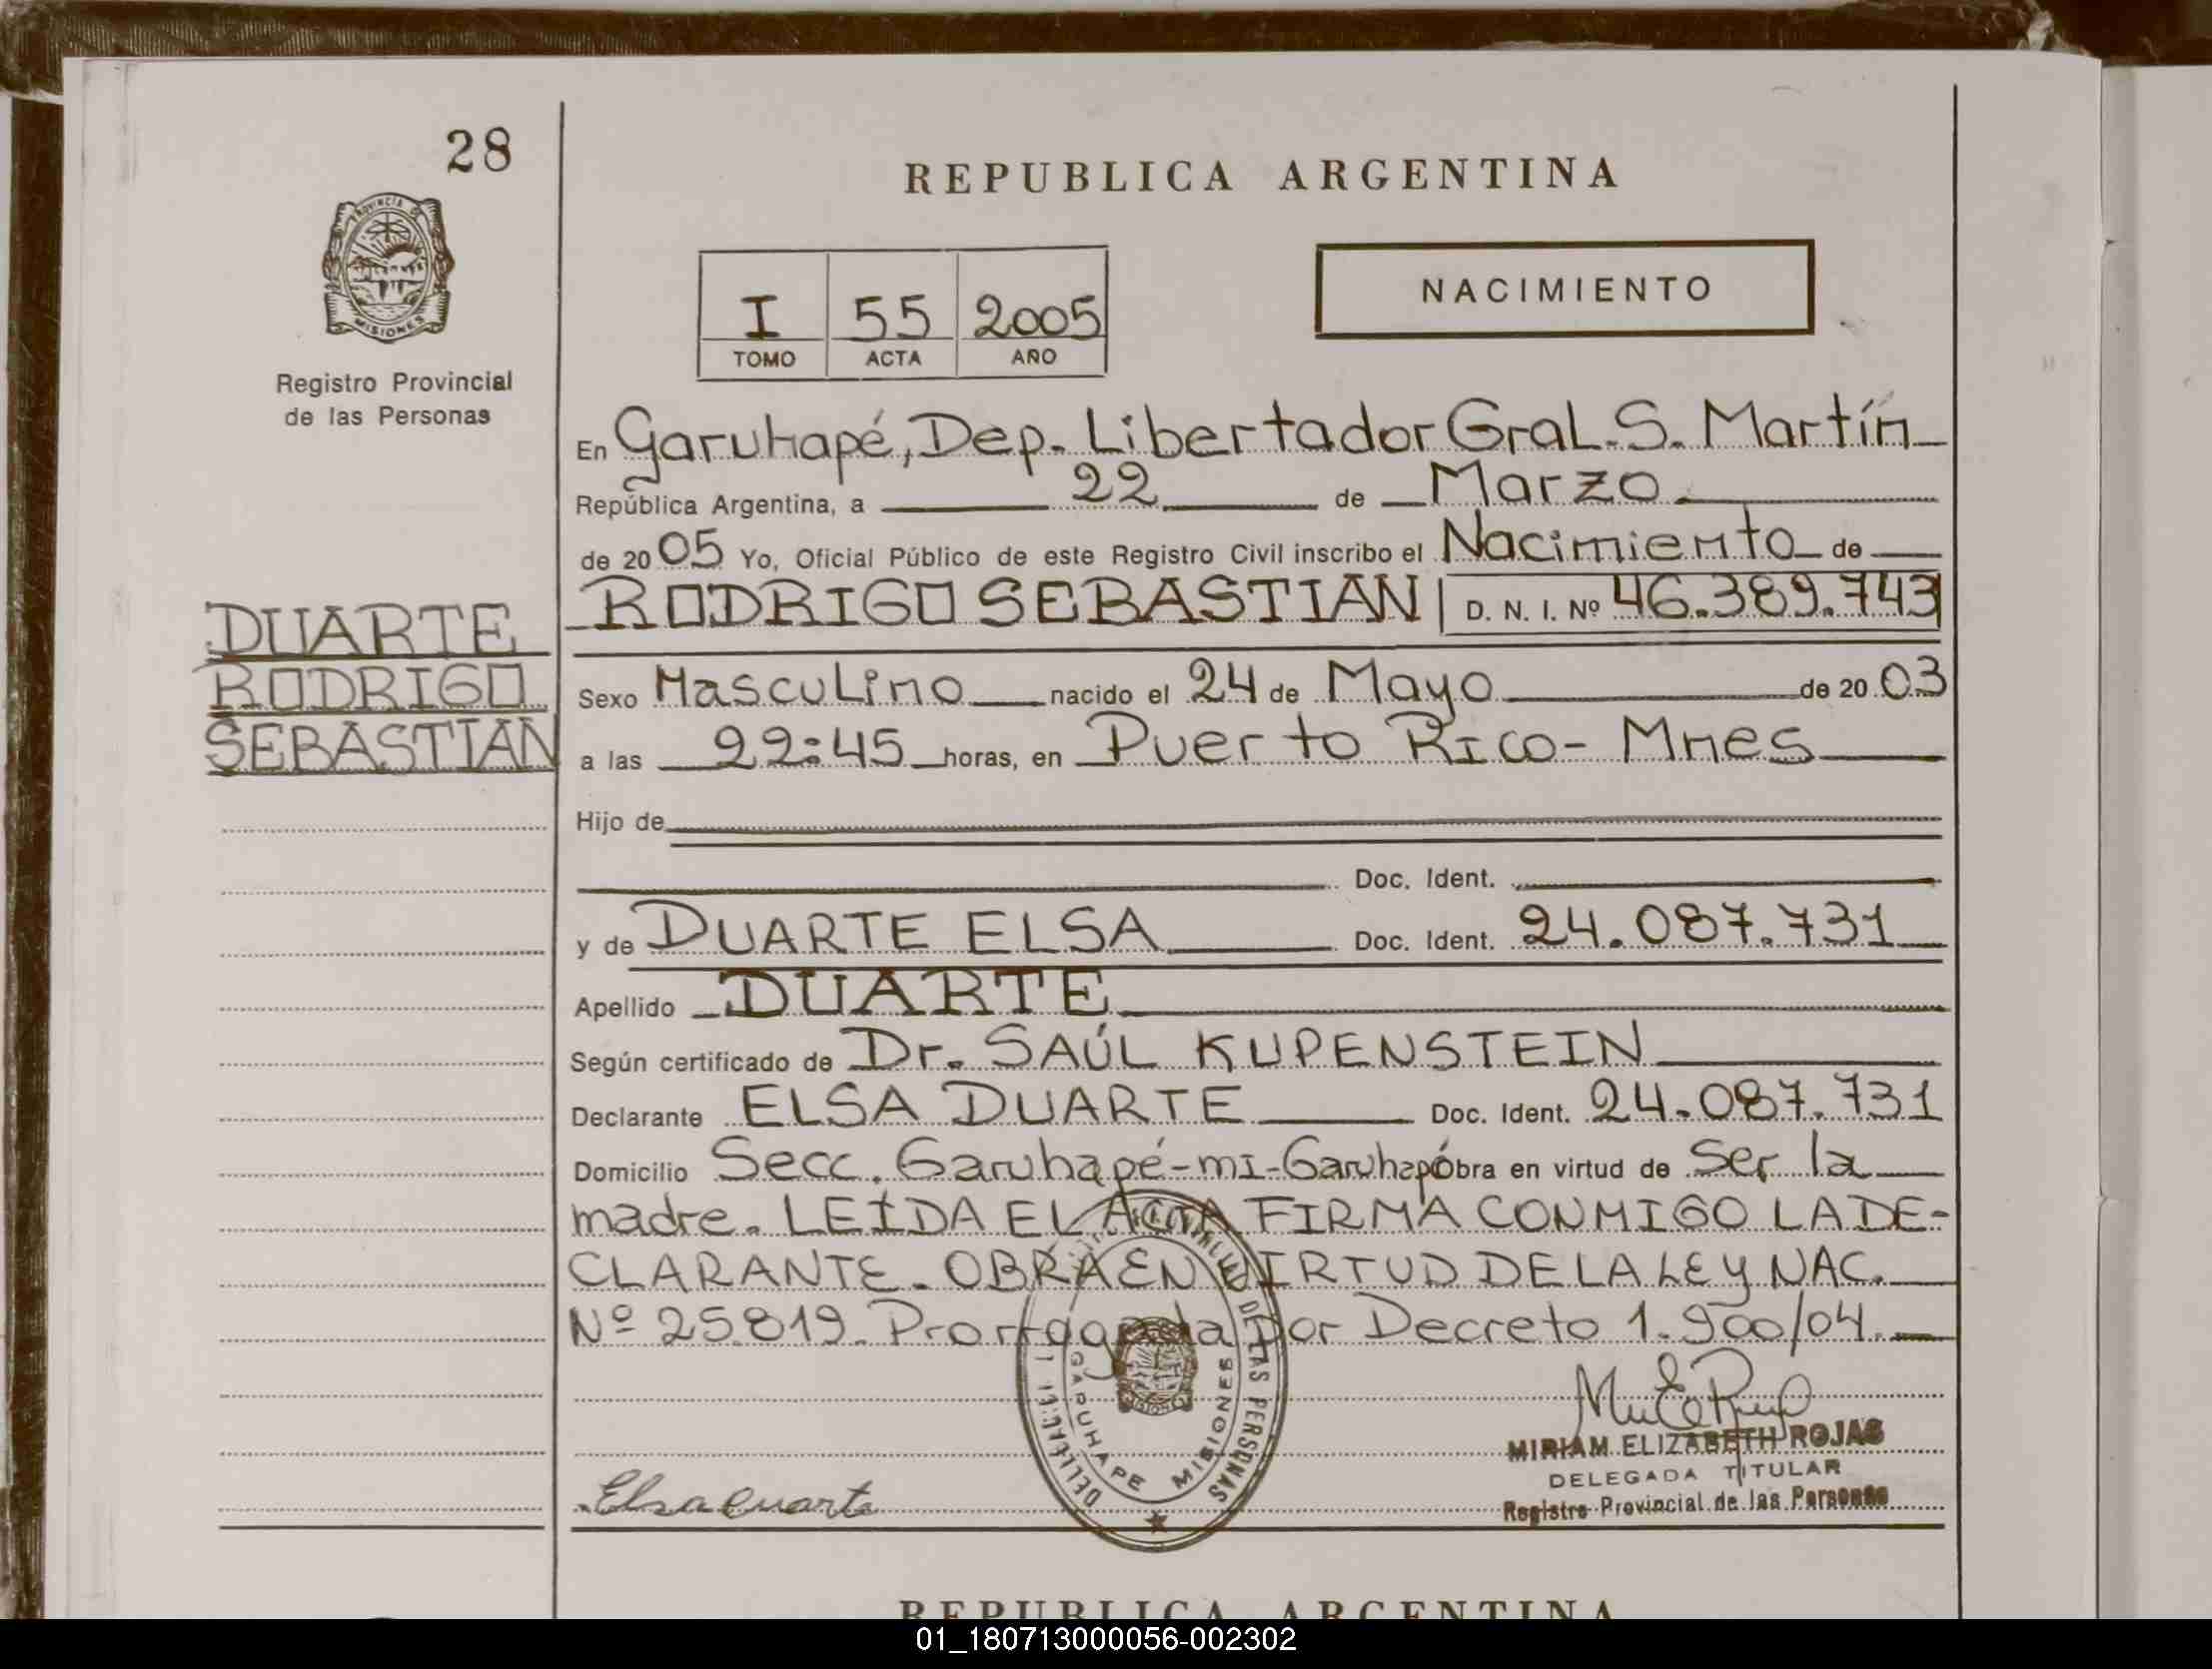 28
REPUBLICA ARGENTINA
PROVINCIA DE
MISIONES
NACIMIENTO
I 55 2005
TOMO ACTA AÑO
Registro Provincial
de las Personas
En Garuhapé, Dep. Libertador Gral. S. Martín
República Argentina, a 22 de Marzo
de 2005 Yo, Oficial Público de este Registro Civil inscribo el Nacimiento de
RODRIGO SEBASTIAN D. N. I. Nº 46.389.743
DUARTE
RODRIGO
SEBASTIAN
Sexo Masculino nacido el 24 de Mayo de 2003
a las 22:45 horas, en Puerto Rico - Mnes
Hijo de
Doc. Ident.
y de DUARTE ELSA Doc. Ident. 24.087.731
Apellido DUARTE
Según certificado de Dr. SAÚL KUPENSTEIN
Declarante ELSA DUARTE Doc. Ident. 24.087.731
Domicilio Secc. Garuhapé-mi-Garuhapé obra en virtud de Ser la
madre. LEIDA EL ACTA FIRMA CONMIGO LA DE-
CLARANTE. OBRA EN VIRTUD DE LA LEY NAC.
Nº 25.819. Prorrogada por Decreto 1.900/04.
DE LAS PERSONAS
GARUHAPE MISIONES
MIRIAM ELIZABETH ROJAS
DELEGADA TITULAR
Registro Provincial de las Personas
Elsa Duarte
REPUBLICA ARGENTINA
01_180713000056-002302